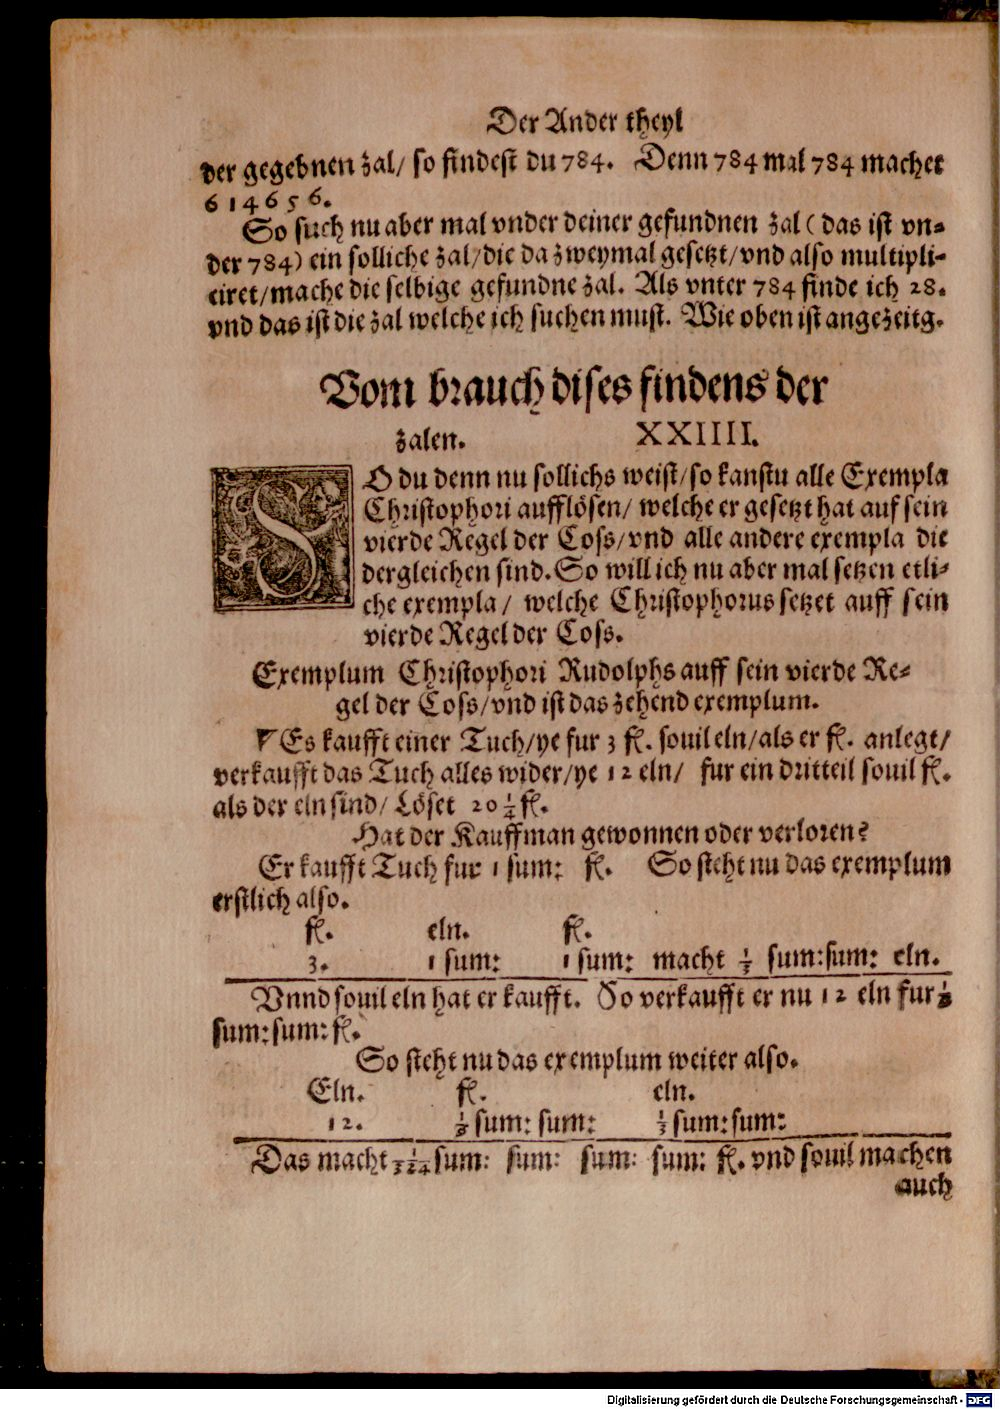 Der Ander theyl
der gegebnen zal/ so findest du 784. Denn 784 mal 784 machet
614656.
So such nu aber mal vnder deiner gefundnen zal (das ist vn=
der 784) ein solliche zal/die da zweymal gesetzt/vnd also multipli=
ciret/mache die selbige gefundne zal. Als vnter 784 finde ich 28.
vnd das ist die zal welche ich suchen must. Wie oben ist angezeitg.
Vom brauch dises findens der
zalen. XXIIII.
SO du denn nu sollichs weist/so kanstu alle Exempla
Christophori aufflösen/ welche er gesetzt hat auf sein
vierde Regel der Coss/vnd alle andere exempla die
dergleichen sind. So will ich nu aber mal setzen etli=
che exempla/ welche Christophorus setzet auff sein
vierde Regel der Coss.
Exemplum Christophori Rudolphs auff sein vierde Re=
gel der Coss/vnd ist das zehend exemplum.
Es kaufft einer Tuch/ye fur 3 fl. souil eln/als er fl. anlegt/
verkaufft das Tuch alles wider/ye 12 eln/ fur ein dritteil souil fl.
als der eln sind/ Löset 20 1/4 fl.
Hat der Kauffman gewonnen oder verloren?
Er kaufft Tuch fur 1 sum: fl. So steht nu das exemplum
erstlich also.
fl. eln. fl.
3. 1 sum: 1 sum: macht 1/3 sum:sum: eln.
Vnnd souil eln hat er kaufft. So verkaufft er nu 12 eln fur 1/9
sum:sum: fl.
So steht nu das exemplum weiter also.
Eln. fl. eln.
12. 1/9 sum: sum: 1/3 sum:sum:
Das macht 1/324 sum: sum: sum: sum: fl. vnd souil machen
auch
Digitalisierung gefördert durch die Deutsche Forschungsgemeinschaft - DFG